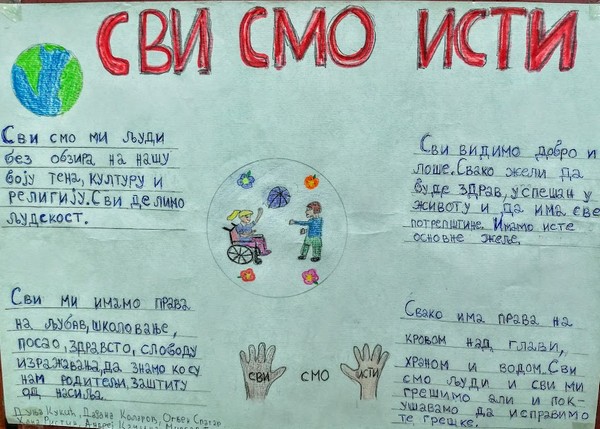 СВИ СМО ИСТИ
Сви смо ми људи
без обзира на нашу
боју тена, културу и
религију. Сви делимо
људскост.
Сви видимо добро и
лоше. Свако жели да
буде здрав, успешан у
животу и да има све
потрепштине. Имамо исте
основне жеље.
Сви ми имамо права
на љубав, школовање,
посао, здравсто, слободу
изражавања, да знамо ко су
нам родитељи, заштиту
од насиља.
СВИ СМО ИСТИ
Свако има права на
кровом над глави,
храном и водом. Сви
смо људи и сви ми
грешимо али и пок-
ушавамо да исправимо
те грешке.
Дуња Кукић, Дајана Каларов, Огњен